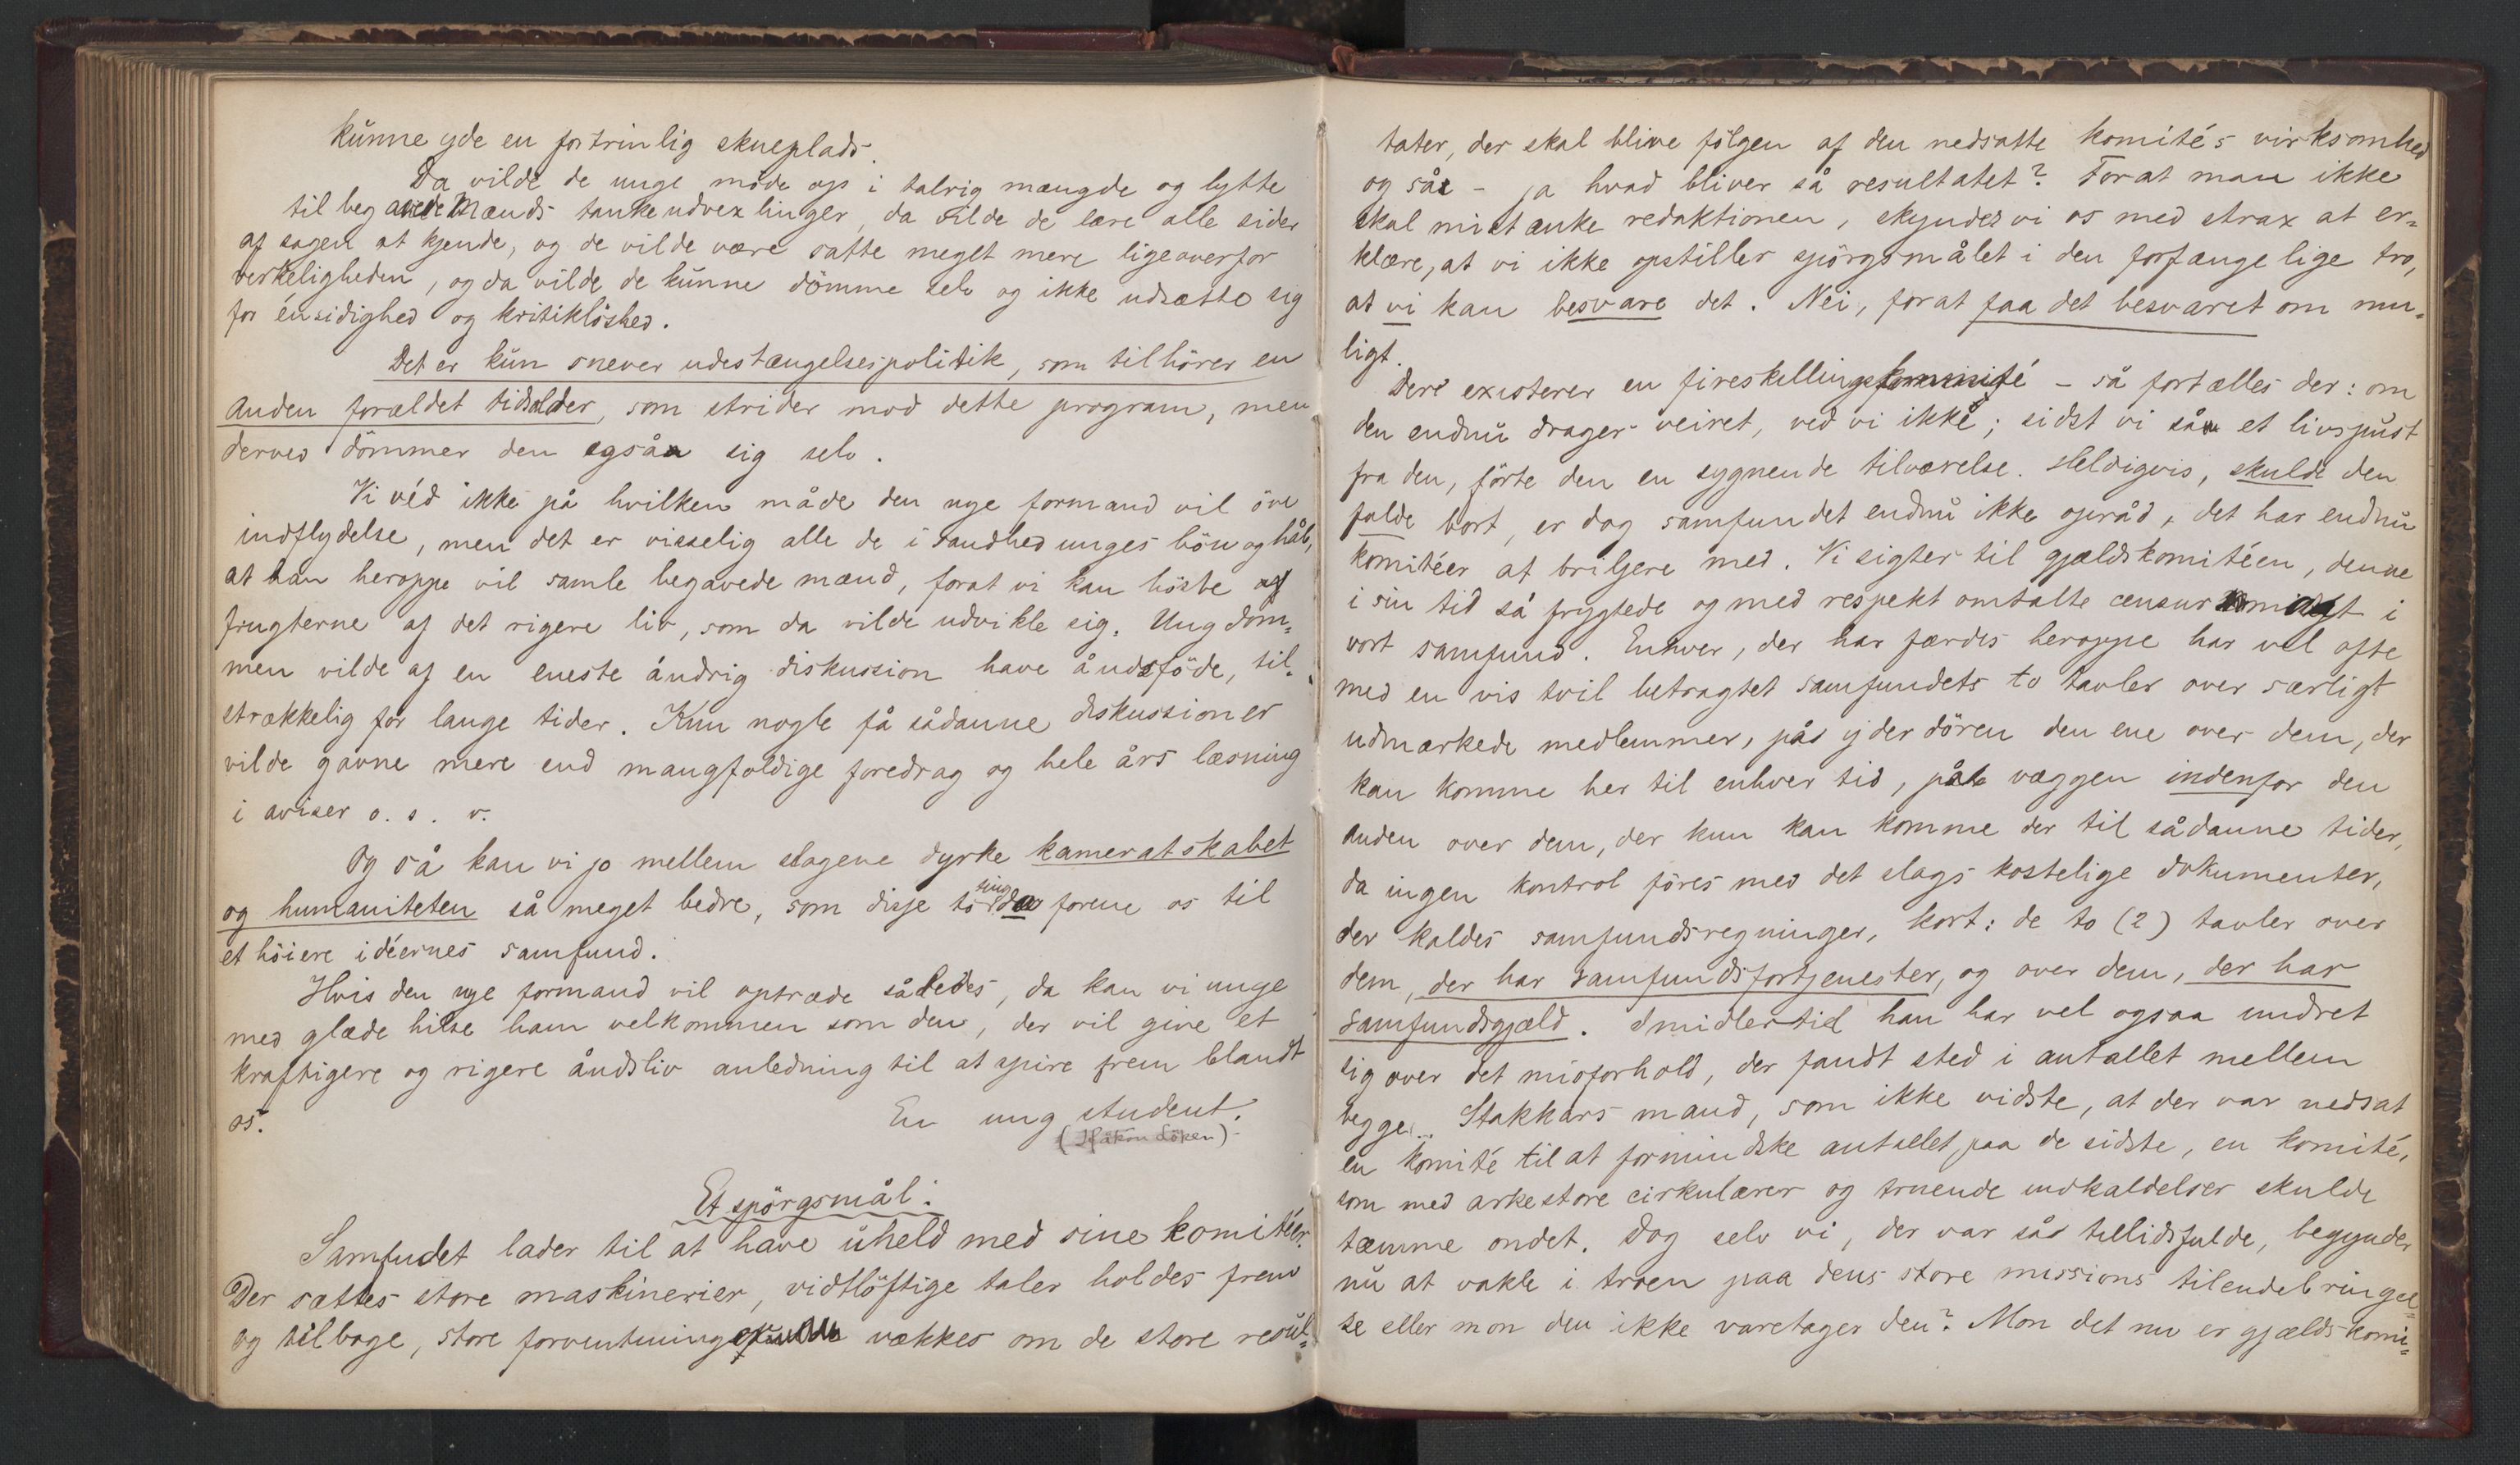 kunne yde en fortrinlig skueplads.
Da vilde de unge møde op i talrig mængde og lytte
til begavede Mænds tankeudvexlinger, da vilde de lære alle sider
af sagen at kjende, og de vilde være satte meget mere ligeoverfor
verkeligheden, og da vilde de kunne dömme selv og ikke udsætte sig
for énsidighed og kritiklöshed.
Det er kun snever udestængelsespolitik, som tilhörer en
anden forældet tidsalder, som strider mod dette program, men
derved dömmer den også sig selv.
Vi véd ikke på hvilken måde den nye formand vil öve
indflydelse, men det er visselig alle de i sandhed unges bön og håb,
at han heroppe vil samle begavede mænd, forat vi kan höste af
frugterne af det rigere liv, som da vilde udvikle sig. Ungdom-
men vilde af en eneste åndrig diskussion have åndsföde, til-
strækkelig for lange tider. Kun nogle få sådanne diskussioner
vilde gavne mere end mangfoldige foredrag og hele års læsning
i aviser o. s. v.
Og så kan vi jo mellem slagene dyrke kameratskabet
og humaniteten så meget bedre, som disse to ting da forene os til
et höiere idéernes samfund.
Hvis den nye formand vil optræde således, da kan vi unge
med glæde hilse ham velkommen som den, der vil give et
kraftigere og rigere åndsliv anledning til at spire frem blandt
os.
En ung student.
(Håkon Löken)
Et spörgsmål:
Samfudet lader til at have uheld med sine komitéer.
Der sættes store maskinerier, vidtlöftige taler holdes frem
og tilbage, store forventninger vækkes om de store resul-
tater, der skal blive fölgen af den nedsatte komités virksomhed
og så - ja hvad bliver så resultatet? Forat man ikke
skal mistænke redaktionen, skynder vi os med strax at er-
klære, at vi ikke opstiller spörgsmålet i den forfængelige tro,
at vi kan besvare det. Nei, forat faa det besvaret om mu-
ligt.
Der existerer en fireskillingskomité - så fortælles der: om
den endnu drager veiret, ved vi ikke; sidst vi så et livspust
fra den, förte den en sygnende tilværelse. Heldigvis, skulde den
falde bort, er dog samfundet endnu ikke opråd, det har endnu
komitéer at briljere med. Vi sigter til gjældskomitéen, denne
i sin tid så frygtede og med respekt omtalte censurmagt i
vort samfund. Enhver, der har færdes heroppe har vel ofte
med en vis tvil betragtet samfundets to tavler over særligt
udmærkede medlemmer, på yderdören den ene over dem, der
kan komme her til enhver tid, på væggen indenfor den
anden over dem, der kun kan komme der til sådanne tider,
da ingen kontrol föres med det slags kostelige dokumenter,
der kaldes samfundsregninger, kort: de to (2) tavler over
dem, der har samfundsfortjenester, og over dem, der har
samfundsgjæld. Imidlertid han har vel ogsaa undret
sig over det misforhold, der fandt sted i antallet mellem
begge... Stakkars mand, som ikke vidste, at der var nedsat
en komité til at formindske antallet paa de sidste, en komité,
som med arkestore cirkulærer og truende indkaldelser skulde
tæmme ondet. Dog selv vi, der var så tillidsfulde, begynder
nu at vakle i troen paa dens store missions tilendebringel-
se eller mon den ikke varetager den? Mon det nu er gjældskomi-